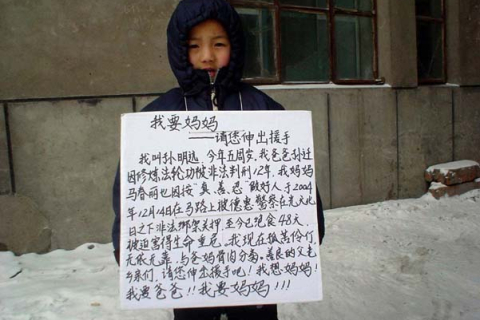 我要妈妈
——请您伸出援手
我叫孙明远，今年五周岁，我爸爸孙迁
因修炼法轮功被非法判刑12年，我妈妈
马春丽也因按"真、善、忍"做好人于2004
年12月14日在马路上被德惠警察在光天化
日之下非法绑架关押，至今已绝食48天，
被迫害得生命垂危。我现在孤苦伶仃
无依无靠，与爸妈骨肉分离。善良的父老
乡亲们，请您伸出援手吧！我想妈妈！
我要爸爸！！我要妈妈！！！